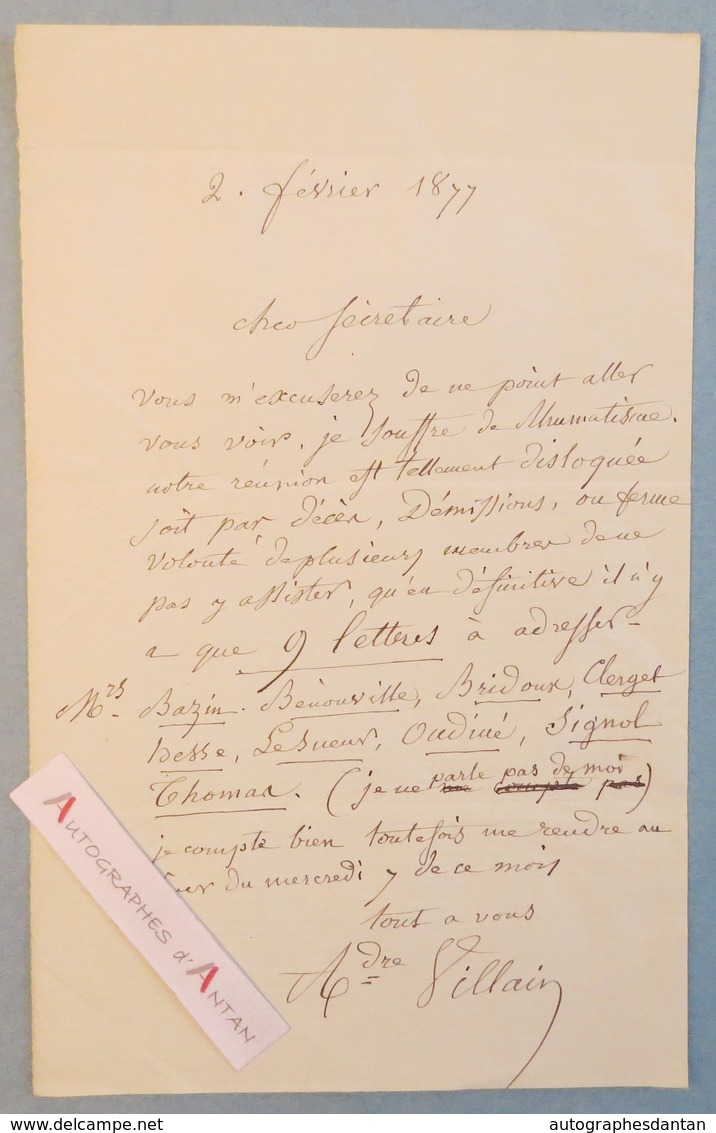 2. février 1877
cher Sécretaire
vous m'excuserez de ne point aller
vous voir. je souffre de Rhumatisme.
notre réunion est tellement disloquée
soit par décès, Démissions, ou ferme
volonté de plusieurs membres de ne
pas y assister, qu'en définitive il n'y
a que 9 lettres à adresser -
Mrs. Bazin. Bénouville, Bridoux, Clerget
hesse, LeSueur, Oudiné, Signol
Thomas. (je ne parle pas de moi)
je compte bien toutefois me rendre au
du mercredi 7 de ce mois
tout a vous
Adre Villain
AUTOGRAPHES d'ANTAN
delcampe.net
autographesdantan